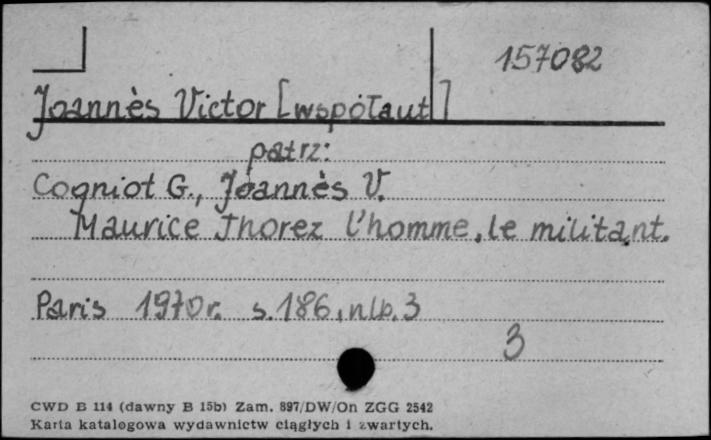 157082
Joannès Victor [współaut]
patrz:
Cogniot G., Joannès V.
Maurice Thorez l'homme, le militant.
Paris 1970r. s.186, nlb.3
3
CWD B 114 (dawny B 15b) Zam. 897/DW/On ZGG 2542
Karta katalogowa wydawnictw ciągłych i zwartych.